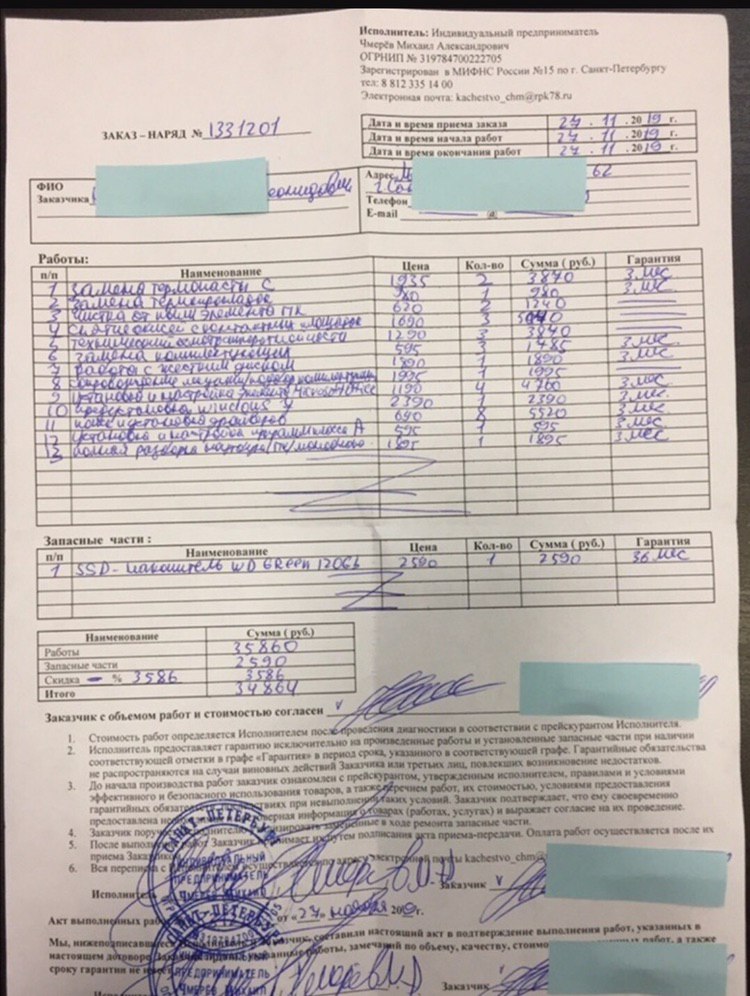 Исполнитель: Индивидуальный предприниматель
Чмерёв Михаил Александрович
ОГРНИП № 319784700222705
Зарегистрирован в МИФНС России №15 по г. Санкт-Петербургу
тел: 8 812 335 14 00
Электронная почта: kachestvo_chm@rpk78.ru
ЗАКАЗ – НАРЯД № 1331201
Дата и время приема заказа 27 . 11 . 2019 г.
Дата и время начала работ 27 . 11 . 2019 г.
Дата и время окончания работ 27 . 11 . 2019 г.
ФИО
Заказчика
Адрес 62
Телефон
E-mail @
Работы:
п/п Наименование Цена Кол-во Сумма ( руб.) Гарантия
1 Замена термопасты С 1935 2 3870 3 мес
2 Замена термопрокладок 980 1 980 3 мес
3 Чистка от пыли элемента ПК 620 2 1240
4 Снятие окисей с контактных площадок 1690 3
5 Технический осмотр 1290 3 3870
6 Замена комплектующих 595 3 1785 3 мес
7 Работа с жестким диском 1890 1 1890 3 мес
8 1995 1 1995
9 Установка и настройка 1190 4 4760 3 мес
10 Windows 2390 1 2390 3 мес
11 Поиск и установка драйверов 690 8 5520 3 мес
12 Установка и настройка программ класса А 595 1 595 3 мес
13 Полная разборка 1895 1 1895 3 мес
Запасные части :
п/п Наименование Цена Кол-во Сумма ( руб.) Гарантия
1 SSD - накопитель WD Green 120Gb 2590 1 2590 36 мес
Наименование Сумма ( руб.)
Работы 35860
Запасные части 2590
Скидка – % 3586 3586
Итого 34864
Заказчик с объемом работ и стоимостью согласен V
1. Стоимость работ определяется Исполнителем после проведения диагностики в соответствии с прейскурантом Исполнителя.
2. Исполнитель предоставляет гарантию исключительно на произведенные работы и установленные запасные части при наличии
соответствующей отметки в графе «Гарантия» в период срока, указанного в соответствующей графе. Гарантийные обязательства
не распространяются на случаи виновных действий Заказчика или третьих лиц, повлекших возникновение недостатков.
3. До начала производства работ заказчик ознакомлен с прейскурантом, утвержденным исполнителем, правилами и условиями
эффективного и безопасного использования товаров, а также перечнем работ, их стоимостью, условиями предоставления
гарантийных при невыполнении таких условий. Заказчик подтверждает, что ему своевременно
предоставлена информация о товарах (работах, услугах) и выражает согласие на их проведение.
4. Заказчик замененные в ходе ремонта запасные части.
5. После работ Заказчик принимает их путем подписания акта приема-передачи. Оплата работ осуществляется после их
приема Заказчиком.
6. Вся переписка с Исполнителем осуществляется по адресу электронной почты kachestvo_chm@
Исполнитель Чмерёв М.А. Заказчик V
Акт выполненных работ от «27» ноября 2019г.
Мы, нижеподписавшиеся Исполнитель и Заказчик, составили настоящий акт в подтверждение выполнения работ, указанных в
настоящем договоре работы, замечаний по объему, качеству, работ, а также
сроку гарантии не имеет.
Исполнитель Чмерёв М.А. Заказчик
САНКТ-ПЕТЕРБУРГ
ИНДИВИДУАЛЬНЫЙ
ПРЕДПРИНИМАТЕЛЬ
ЧМЕРЁВ МИХАИЛ
САНКТ-ПЕТЕРБУРГ
ИНДИВИДУАЛЬНЫЙ
ПРЕДПРИНИМАТЕЛЬ
ЧМЕРЁВ МИХАИЛ